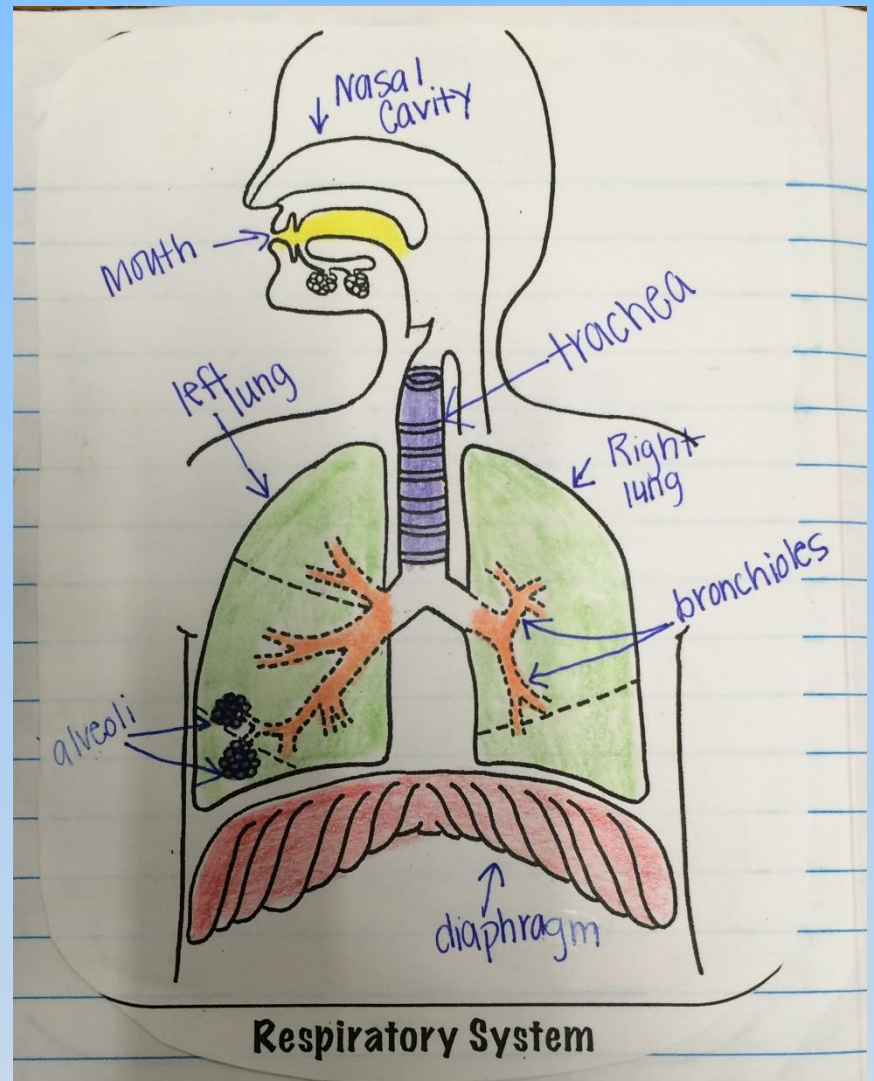 Nasal
Cavity
Mouth
trachea
left
lung
Right
lung
bronchioles
alveoli
diaphragm
Respiratory System